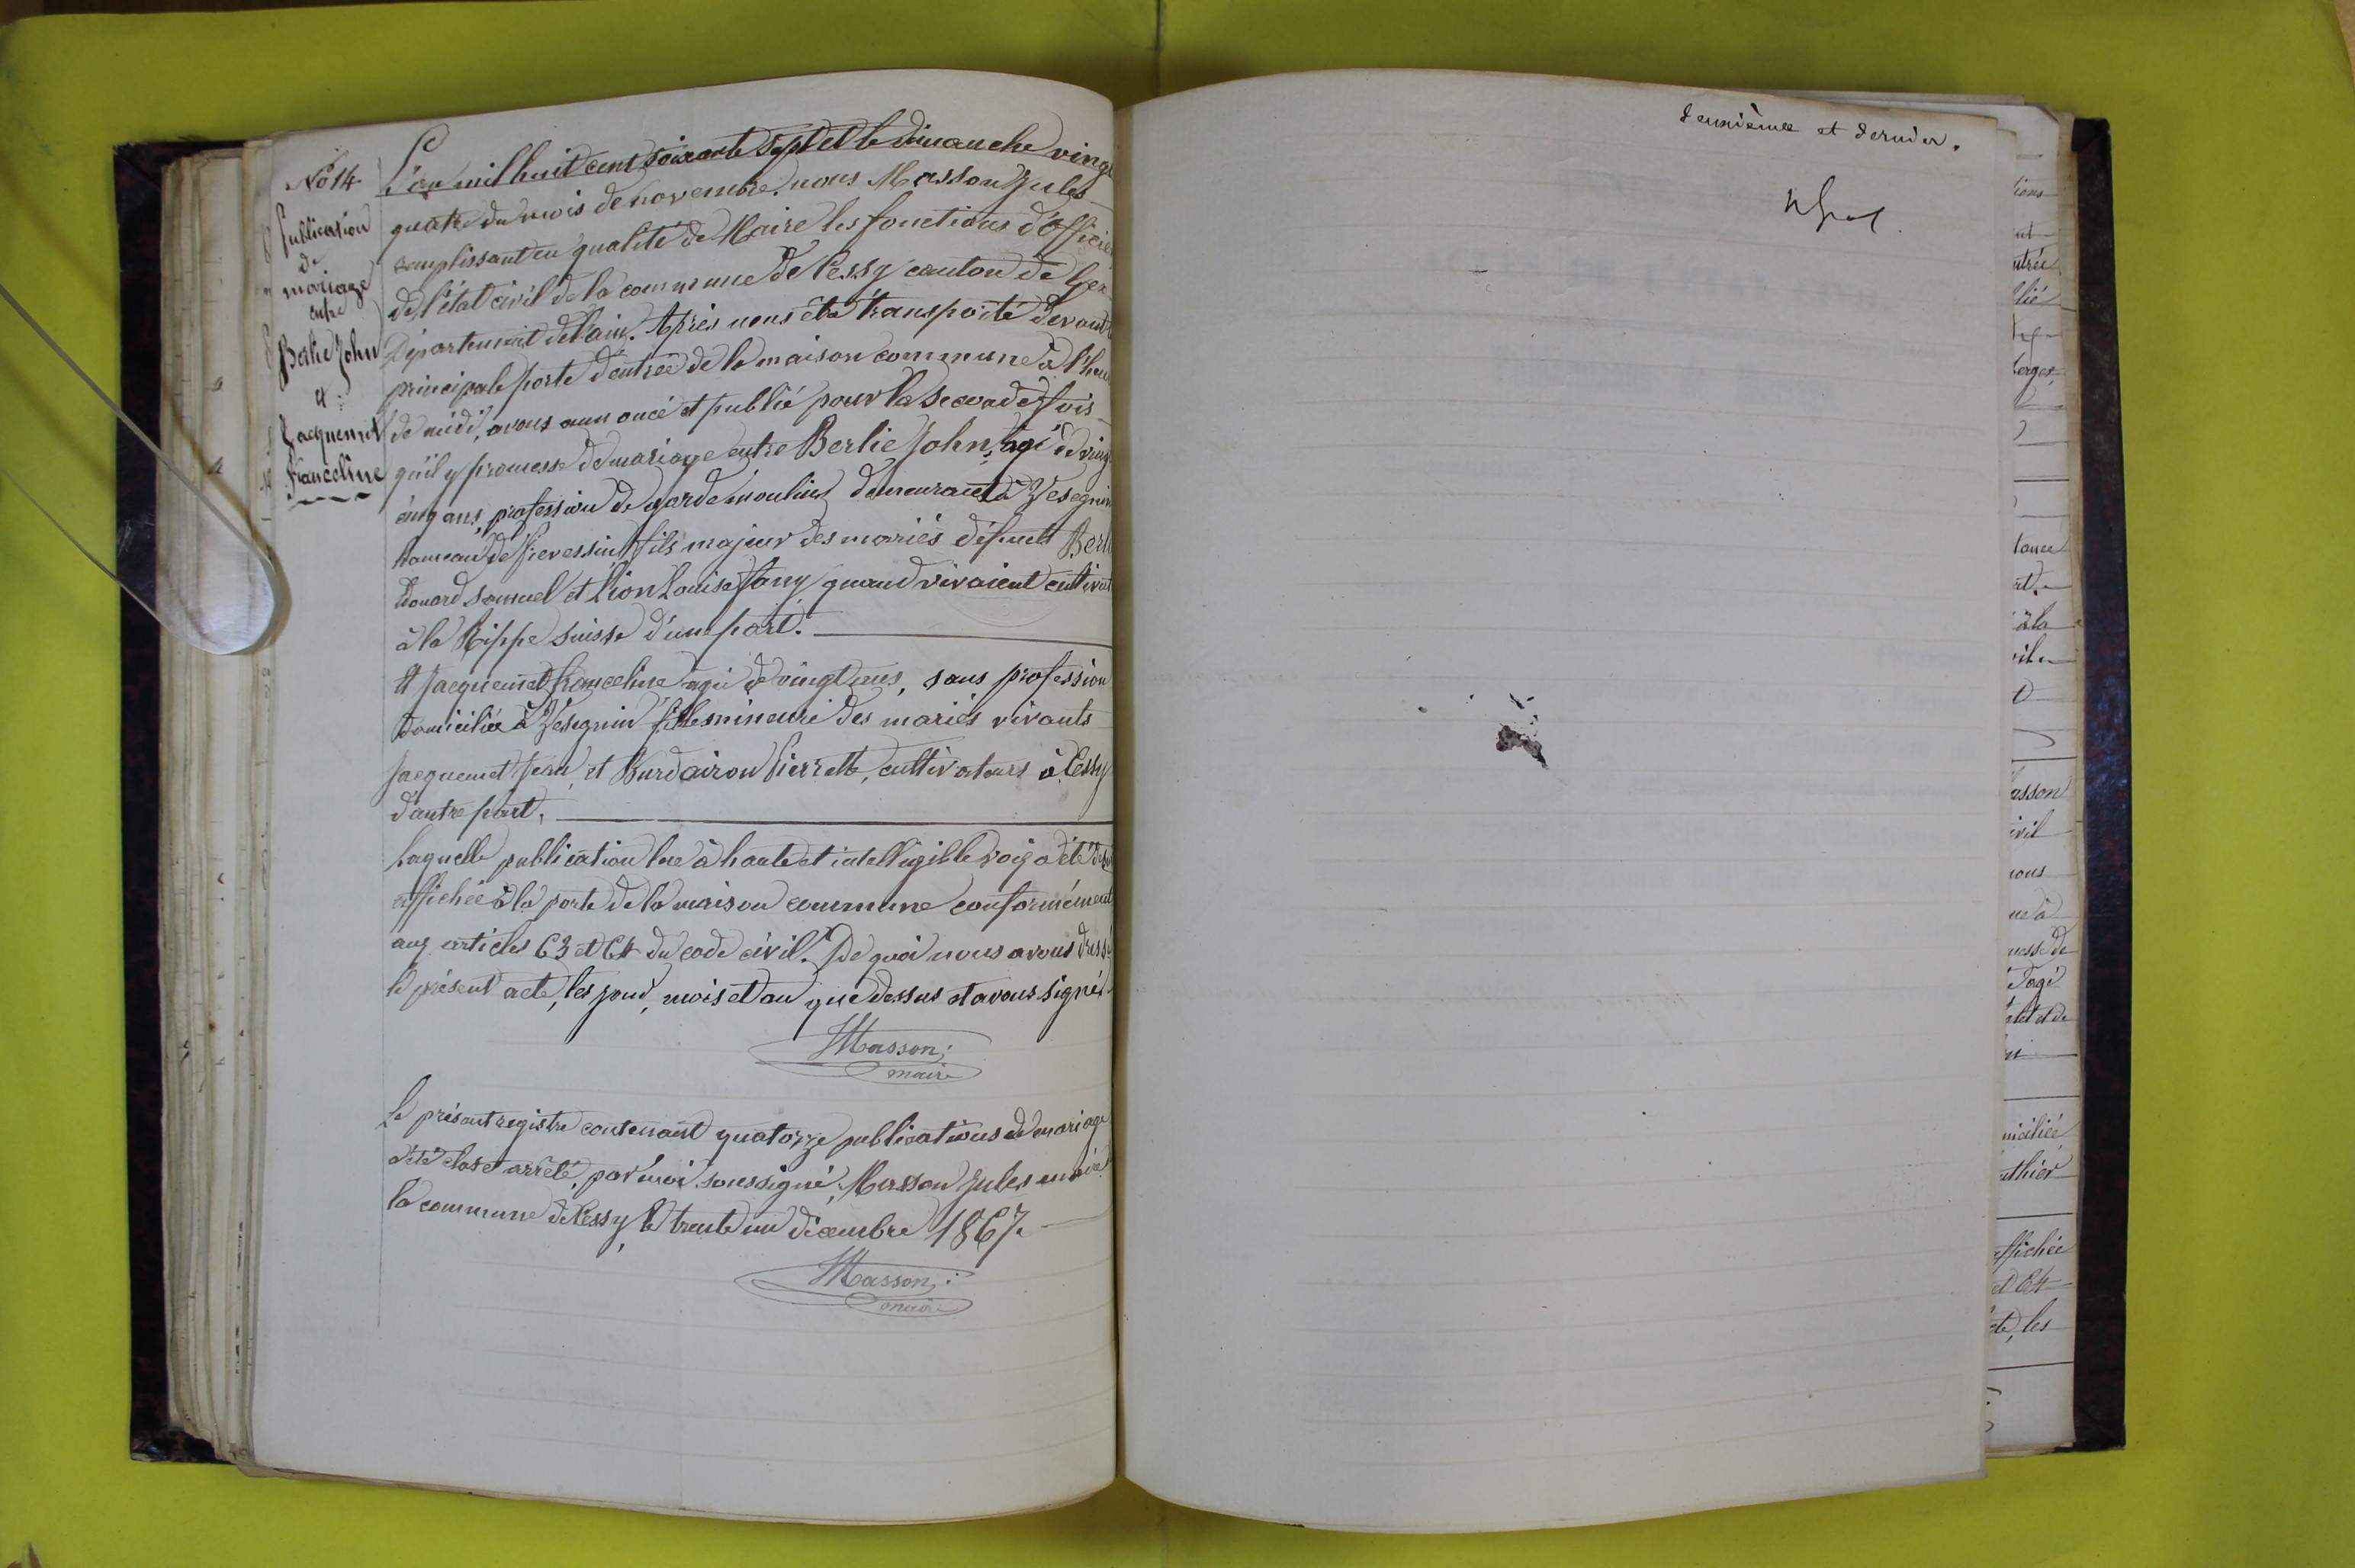 No 14
Publication
de
mariage
entre
Berlie John
et
Jacquemet
Franceline
L'an mil huit cent soixante sept et le dimanche vingt
quatre du mois de novembre. nous Masson Jules
remplissant en qualité de Maire les fonctions d'Officier
de l'état civil de la commune de Cessy canton de Gex
Département de l'ain. Après nous être transporté devant
principale porte d'entrée de la maison commune à l'heu
de midi, avons annoncé et publié pour la seconde fois
qu'il y promesse de mariage entre Berlie John, âgé de vingt
cinq ans, profession de garde moulins demeurant à Vesegnin
hameau de Prevessin, fils majeur des mariés défunts Berli
Edouard Samuel et Lion Louise Fany quand vivaient cultivat
à la Rippe suisse d'une part.
Et Jacquemet Franceline agée de vingt ans, sans profession
domiciliée à Vésegnin fille mineure des mariés vivants
Jacquemet Jean, et Burdairon Pierrette, cultivateurs à Cessy
d'autre part.
Laquelle publication lue à haute et intelligible voix a été de
affichée à la porte de la maison commune conformément
aux articles 63 et 64 du code civil. De quoi nous avons dressé
le présent acte, les jour, mois et an que dessus et avons signé.
JMasson,
maire
Le présent registre contenant quatorze publications de mariage
a été clos et arrêté, par moi soussigné, Masson Jules maire
la commune de Cessy, le trente un décembre 1867.
JMasson,
maire
deuxième et dernier.
tions
utrée
lié
asson
ivil
nous
ue à
messe de
âgé
alet et de
miciliée
uthier
affichée
et 64
cte, les